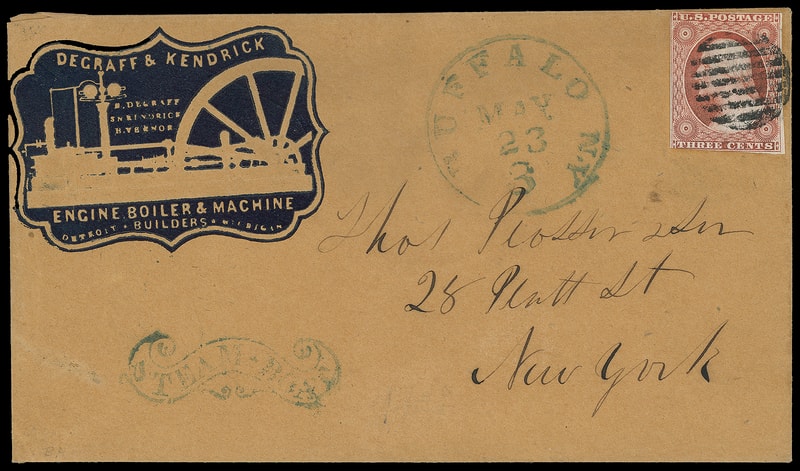 DEGRAFF & KENDRICK
H. DEGRAFF
S.N. KENDRICK
H. VERNOR
ENGINE, BOILER & MACHINE
DETROIT • BUILDERS • MICHIGAN
BUFFALO N.Y
MAY
23
3
U.S. POSTAGE
THREE CENTS
Thos Prosser & Son
28 Platt St
New York
STEAM-BOAT